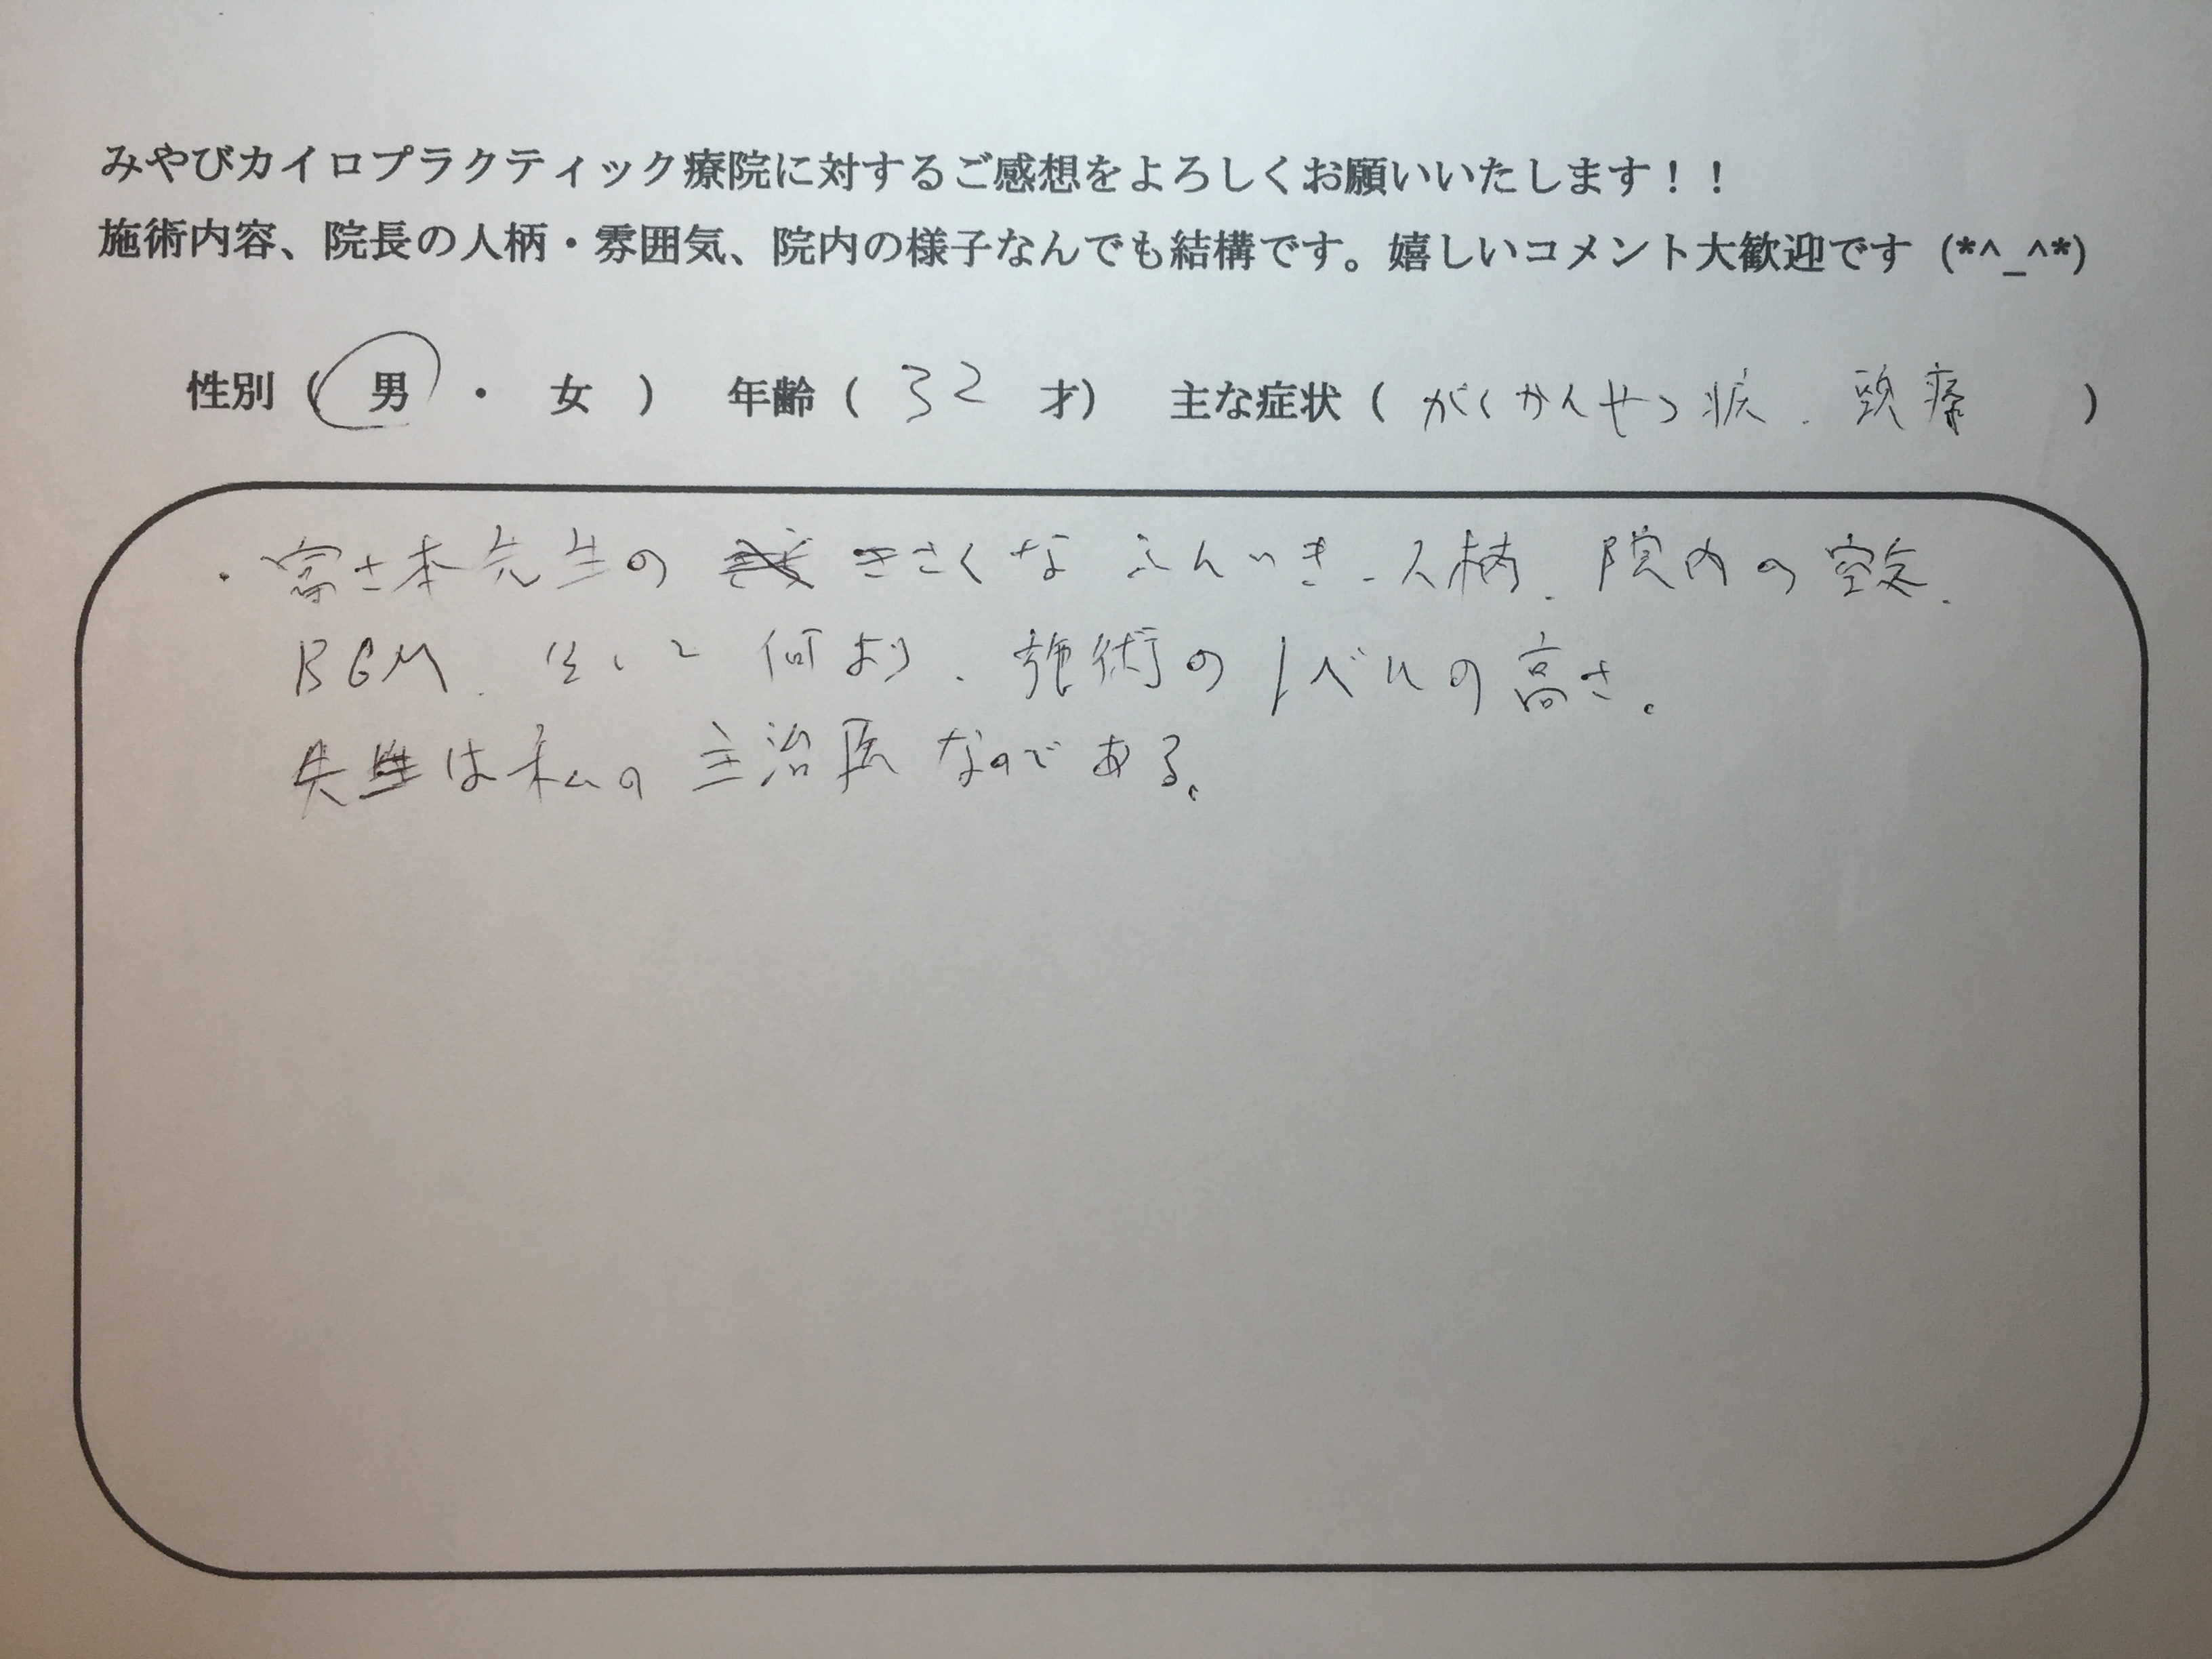 みやびカイロプラクティック療院に対するご感想をよろしくお願いいたします！！
施術内容、院長の人柄・雰囲気、院内の様子なんでも結構です。嬉しいコメント大歓迎です (*^_^*)
性別（ 男 ・ 女 ） 年齢（ 32 才） 主な症状（ がくかんせつ症、頭痛 ）
・富士本先生の きさくな ふんいき、人柄、院内の空気、
BGM、そして何より、施術のレベルの高さ。
先生は私の主治医なのである。